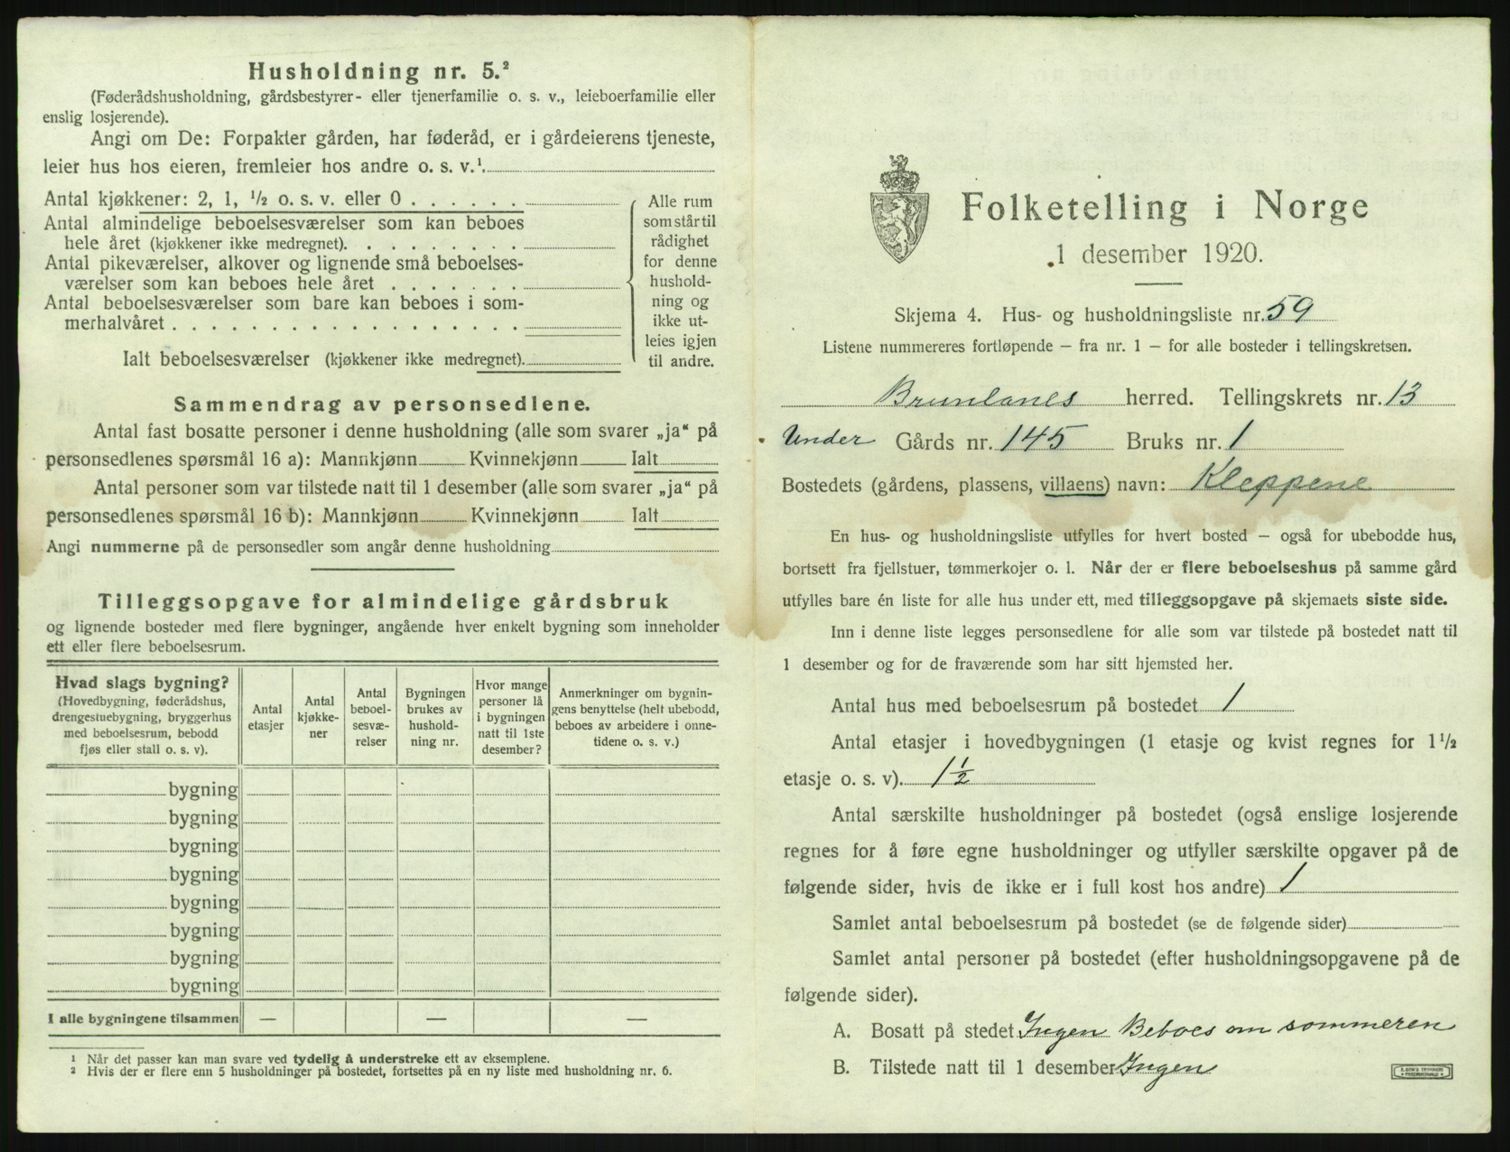 Husholdning nr. 5.²
(Føderådshusholdning, gårdsbestyrer- eller tjenerfamilie o. s. v., leieboerfamilie eller
enslig losjerende).
Angi om De: Forpakter gården, har føderåd, er i gårdeierens tjeneste,
leier hus hos eieren, fremleier hos andre o. s. v.¹
Antal kjøkkener: 2, 1, ½ o. s. v. eller 0 . . . . . .
Antal almindelige beboelsesværelser som kan beboes
hele året (kjøkkener ikke medregnet). . . . . . . . .
Antal pikeværelser, alkover og lignende små beboelses-
værelser som kan beboes hele året . . . . . . .
Antal beboelsesværelser som bare kan beboes i som-
merhalvåret . . . . . . . . . . . . . . . . . .
Ialt beboelsesværelser (kjøkkener ikke medregnet).
Alle rum
som står til
rådighet
for denne
hushold-
ning og
ikke ut-
leies igjen
til andre.
Sammendrag av personsedlene.
Antal fast bosatte personer i denne husholdning (alle som svarer „ja“ på
personsedlenes spørsmål 16 a): Mannkjønn Kvinnekjønn Ialt
Antal personer som var tilstede natt til 1 desember (alle som svarer „ja“ på
personsedlenes spørsmål 16 b): Mannkjønn Kvinnekjønn Ialt
Angi nummerne på de personsedler som angår denne husholdning
Tilleggsopgave for almindelige gårdsbruk
og lignende bosteder med flere bygninger, angående hver enkelt bygning som inneholder
ett eller flere beboelsesrum.
Hvad slags bygning?
(Hovedbygning, føderådshus,
drengestuebygning, bryggerhus
med beboelsesrum, bebodd
fjøs eller stall o. s. v).
Antal
etasjer
Antal
kjøkke-
ner
Antal
beboel-
sesvæ-
relser
Bygningen
brukes av
hushold-
ning nr.
Hvor mange
personer lå
i bygningen
natt til 1ste
desember?
Anmerkninger om bygnin-
gens benyttelse (helt ubebodd,
beboes av arbeidere i onne-
tidene o. s. v.)
bygning
bygning
bygning
bygning
bygning
bygning
bygning
bygning
I alle bygningene tilsammen — — —
¹ Når det passer kan man svare ved tydelig å understreke ett av eksemplene.
² Hvis der er flere enn 5 husholdninger på bostedet, fortsettes på en ny liste med husholdning nr. 6.
Folketelling i Norge
1 desember 1920.
Skjema 4. Hus- og husholdningsliste nr. 59
Listene nummereres fortløpende — fra nr. 1 — for alle bosteder i tellingskretsen.
Brunlanes herred. Tellingskrets nr. 13
Under Gårds nr. 145 Bruks nr. 1
Bostedets (gårdens, plassens, villaens) navn: Kleppene
En hus- og husholdningsliste utfylles for hvert bosted — også for ubebodde hus,
bortsett fra fjellstuer, tømmerkojer o. l. Når der er flere beboelseshus på samme gård
utfylles bare én liste for alle hus under ett, med tilleggsopgave på skjemaets siste side.
Inn i denne liste legges personsedlene for alle som var tilstede på bostedet natt til
1 desember og for de fraværende som har sitt hjemsted her.
Antal hus med beboelsesrum på bostedet 1
Antal etasjer i hovedbygningen (1 etasje og kvist regnes for 1½
etasje o. s. v). 1½
Antal særskilte husholdninger på bostedet (også enslige losjerende
regnes for å føre egne husholdninger og utfyller særskilte opgaver på de
følgende sider, hvis de ikke er i full kost hos andre) 1
Samlet antal beboelsesrum på bostedet (se de følgende sider)
Samlet antal personer på bostedet (efter husholdningsopgavene på de
følgende sider).
A. Bosatt på stedet Ingen Beboes om sommeren
B. Tilstede natt til 1 desember Ingen